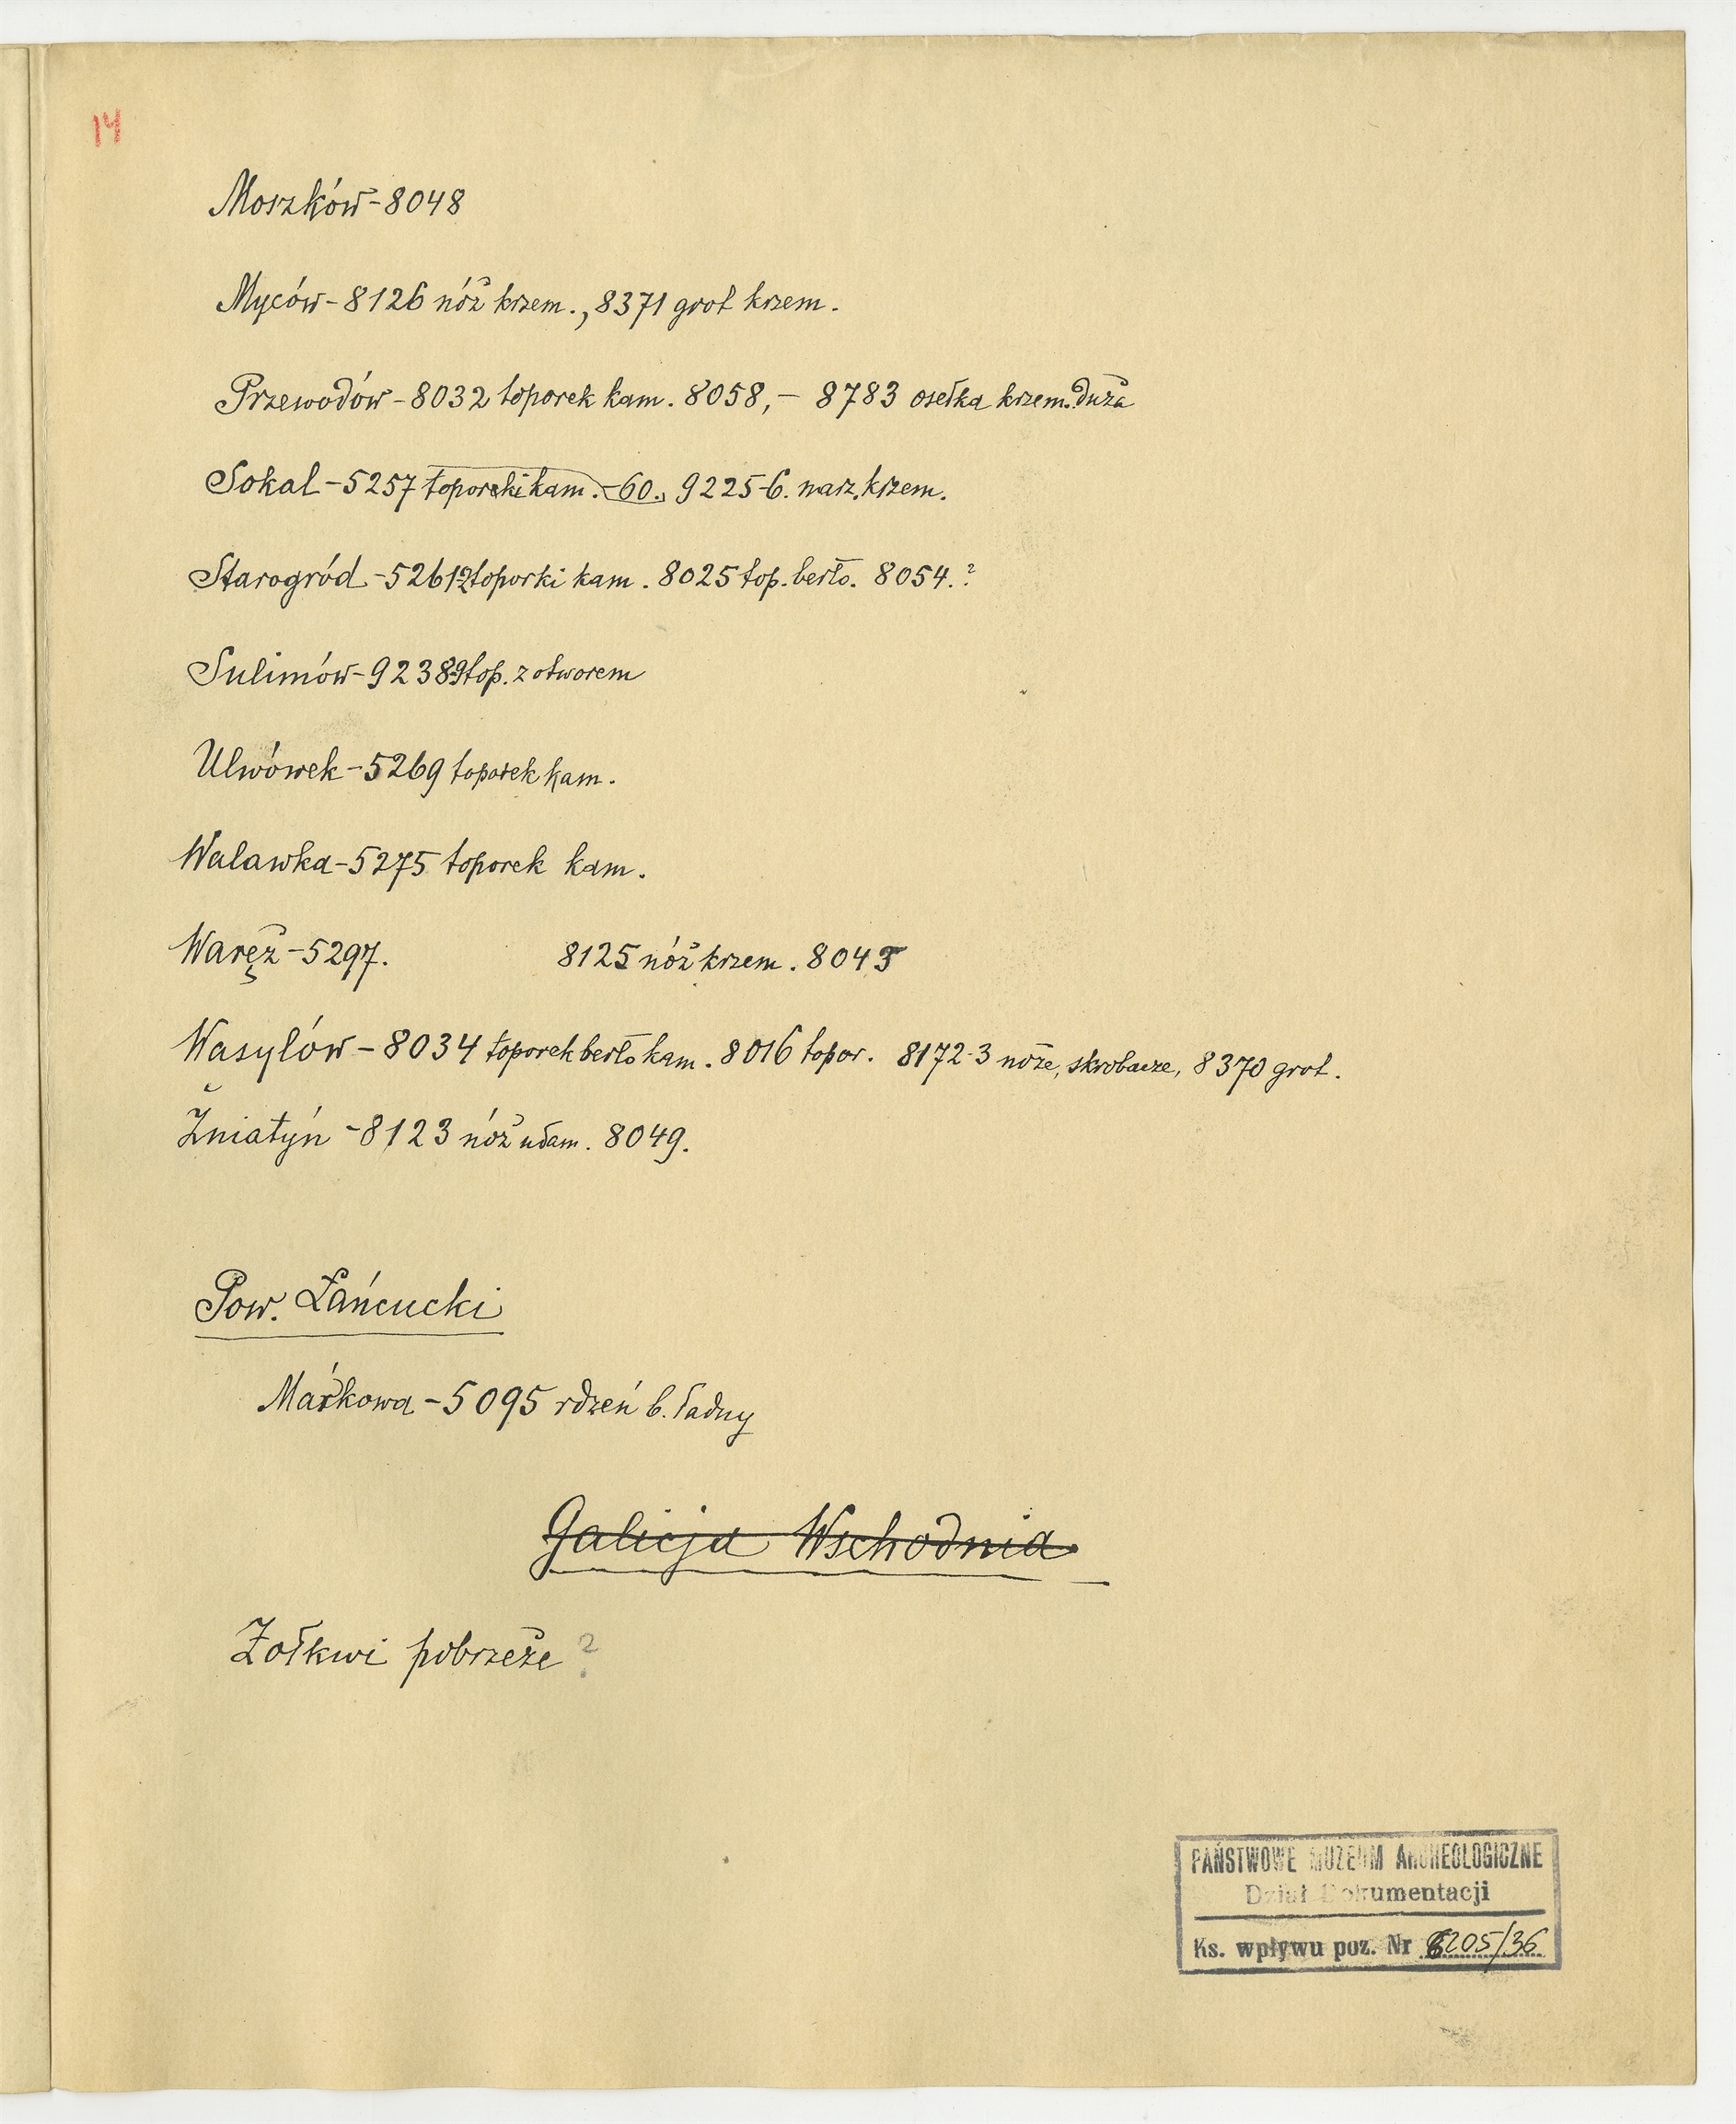 14
Moszków - 8048
Myców - 8126 nóż krzem., 8371 grot krzem.
Przewodów - 8032 toporek kam. 8058, - 8783 osełka krzem. duża
Sokal - 5257 toporki kam. - 60., 9225-6. narz. krzem.
Starogród - 5261-2 toporki kam. 8025 top. berło. 8054.?
Sulimów - 9238-9 top. z otworem
Ulwówek - 5269 toporek kam.
Walawka - 5275 toporek kam.
Waręż - 5297. 8125 nóż krzem. 8045
Wasylów - 8034 toporek berło kam. 8016 topor. 8172-3 noże, skrobacze, 8370 grot.
Żniatyń - 8123 nóż ułam. 8049.
Pow. Łańcucki
Markowa - 5095 rdzeń b. ładny
Galicja Wschodnia
Żołkwi pobrzeże ?
PAŃSTWOWE MUZEUM ARCHEOLOGICZNE
Dział Dokumentacji
Ks. wpływu poz. Nr 6205/36